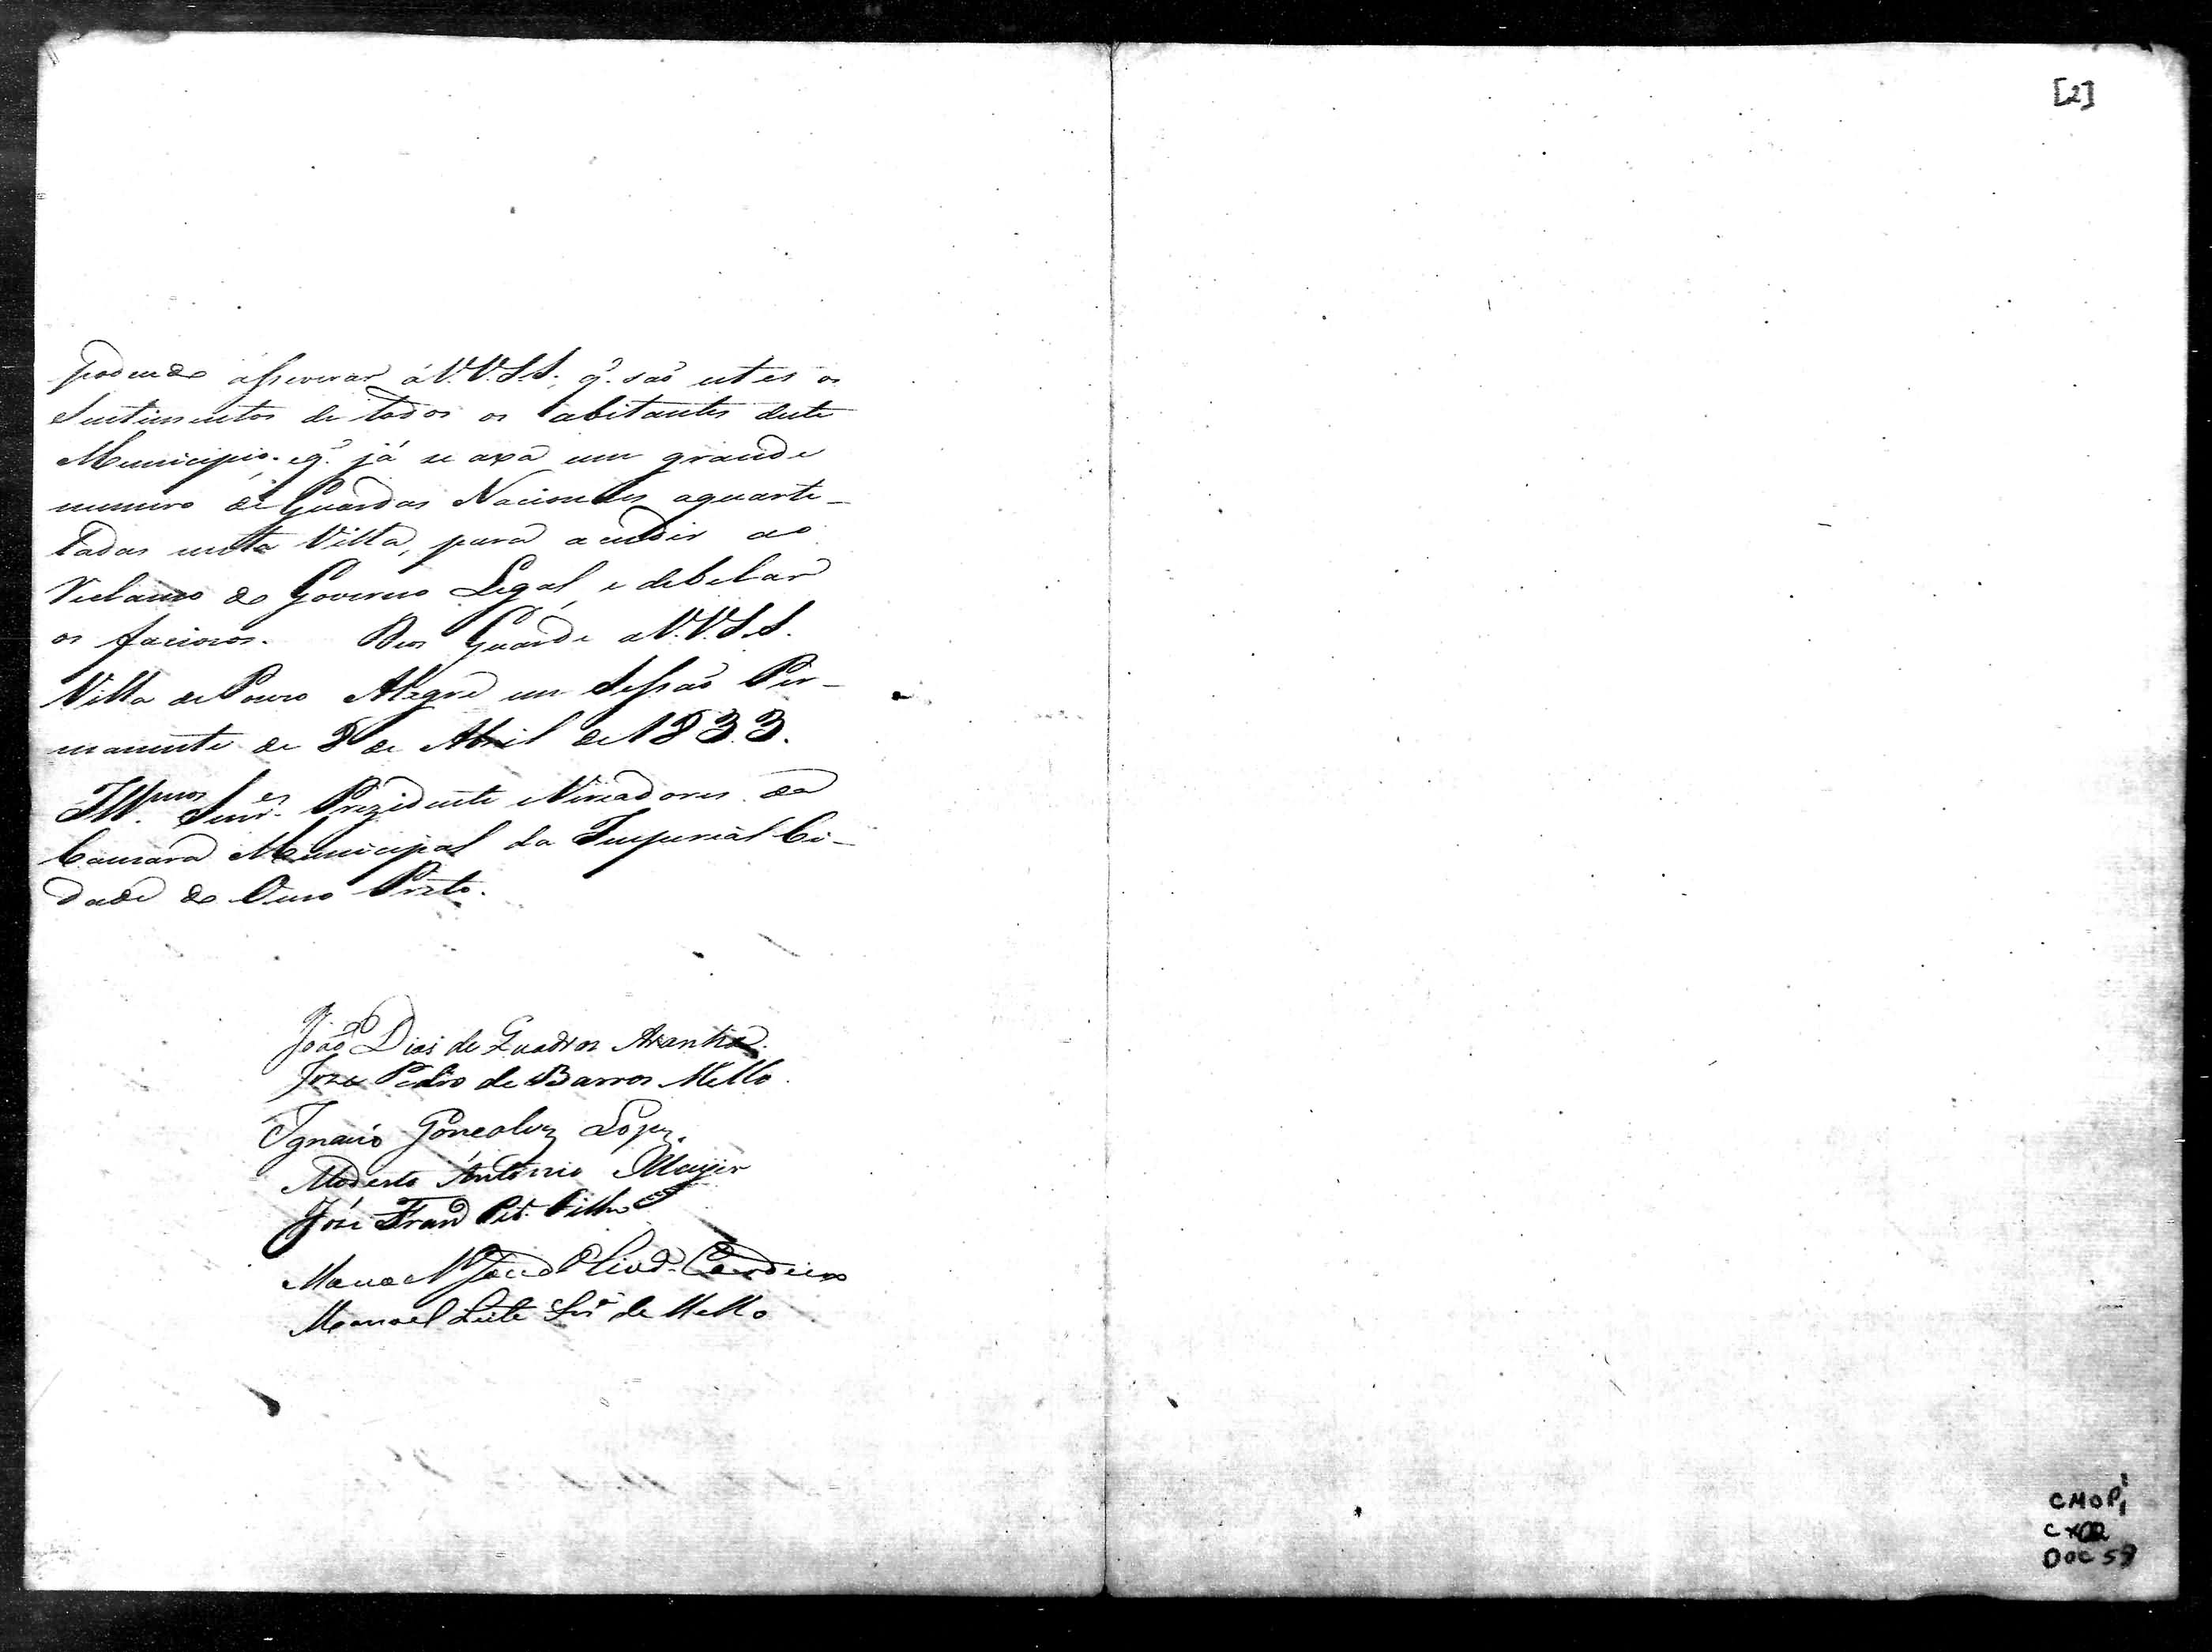 podendo assiverar á V.V.S.S., q̃. saõ estes os
Sentimentos de todos os abitantes deste
Municipio; e q̃. já se axa um grande
numero de Guardas Nacionaes aquarte-
lados nesta Villa, para acudir ao
Reclamo do Governo Legal, e debelar
os faciosos. Deos Guarde a V.V.S.S.
Villa de Pouso Alegre em Sessaõ Per-
manente de 8 de Abril de 1833.
Ill.mos Senr.es Prezidente e Viriadores da
Camara Municipal da Imperial Ci-
dade do Ouro Preto.
João Dias de Quadros Aranha
Joze Pedro de Barros Mello.
Ignacio Goncalvez Lopez.
Modesto Antonio Mayer
José Fran
Manoel Leite de Mello
[2]
CMOP
Cx 02
DOC 59